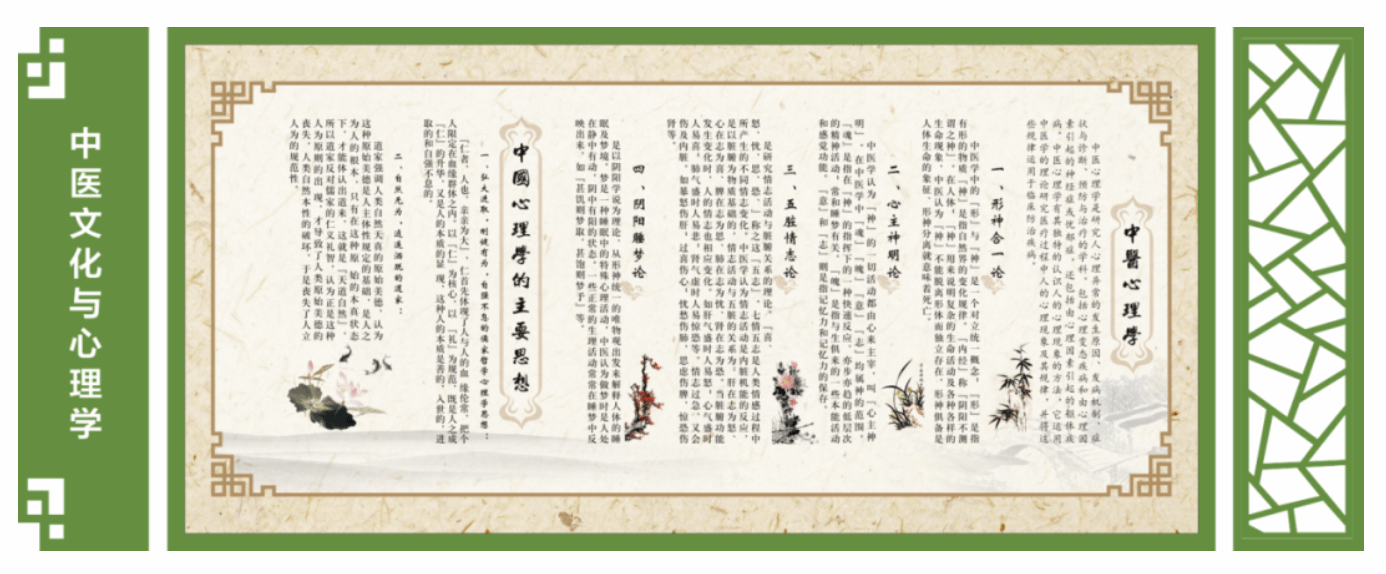 中医文化与心理学
中醫心理學
中医心理学是研究人心理异常的发生原因、发病机制、症
状与诊断、预防与治疗的学科，包括心理变态疾病和由心理因
素引起的神经症或忧郁症，还包括由心理因素引起的躯体疾
病。中医心理学有其独特的认识人的心理现象的方法，它运用
中医学的理论研究医疗过程中人的心理现象及其规律，并将这
些规律运用于临床防治疾病。
一、形神合一论
中医学中的「形」与「神」是一个对立统一概念，「形」是指
有形的物质「神」是指自然界的变化规律。「内经」称「阴阳不测
谓之神」，在人体，「神」用来说明复杂的生命活动及各种各样的
生命现象，中医认为「神」不能脱离形体而独立存在，形神俱备是
人体生命的象征，形神分离就意味着死亡。
二、心主神明论
中医学认为「神」的一切活动都由心来主宰，叫「心主神
明」。在中医学中「魂」「魄」「意」「志」均属神的范围。
「魂」是指在「神」的指挥下的一种快速反应，亦步亦趋的低层次
的精神活动，常和睡梦有关。「魄」是指与生俱来的一些本能活动
和感觉功能。「意」和「志」则是指记忆力和记忆力的保存。
三、五脏情志论
是研究情志活动与脏腑关系的理论。「喜、
怒、忧、思、恐、」称之这「五志」，七情五志是人类情感过程中
所产生的不同情志变化。中医学认为情志活动是内脏机能的反应，
是以脏腑为物质基础的，情志活动与五脏的关系为：肝在志为怒、
心在志为喜、脾在志为思、肺在志为忧、肾在志为恐。当脏腑功能
发生变化时，人的情志也相应变化。如肝气盛时人易怒，心气盛时
人易喜，肺气盛时人易悲，肾气虚时人易惊恐等。情志过急，又会
伤及内脏，如暴怒伤肝，过喜伤心，忧愁伤肺，思虑伤脾，惊恐伤
肾等。
四、阴阳睡梦论
是以阴阳学说为理论，从形神统一的唯物观出发来解释人体的睡
眠及梦境。梦是一种睡眠中的特殊心理活动，中医认为做梦时是人处
在静中有动，阴中有阳的状态。一些正常的生理活动常常在睡梦中反
映出来，如「甚饥则梦取，甚饱则梦予」等。
中國心理學的主要思想
一、弘大进取，刚健有为，自强不息的儒家哲学心理学思想：
「仁者，人也，亲亲为大」，仁首先体现了人与人的血 缘伦常，把个
人限定在血缘群体之内。以「仁」为核心，以「礼」为规范，既是人之成
「仁」的升华，又是人的本质的显 现，这种人的本质是善的，入世的，进
取的和自强不息的。
二、自然无为，逍遥洒脱的道家：
道家强调人类自然天真的原始美德，认为
这种原始美德是人主体性规定的基础，是人之
为人的根本，只有在这种原 始的本真状态
下，才能体认出道来，这就是「天道自然」。
所以道家反对儒家的仁义礼智，认为正是这种
人为原则的出现，才导致了人类原始美德的
丧失，人类自然本性的破坏，于是丧失了人立
人为的规范性。